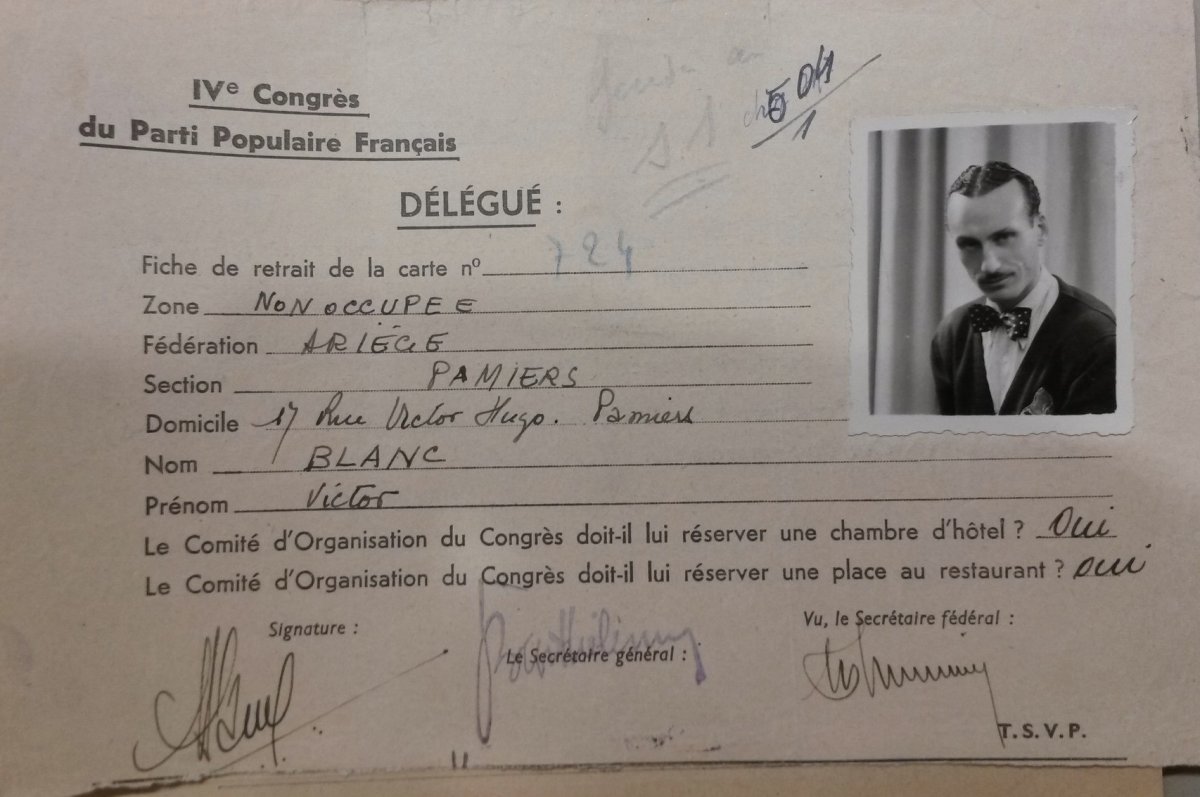 IVe Congrès
du Parti Populaire Français
DÉLÉGUÉ :
Fiche de retrait de la carte nº 724
Zone NON OCCUPEE
Fédération ARIÈGE
Section PAMIERS
Domicile 17 Rue Victor Hugo. Pamiers
Nom BLANC
Prénom Victor
Le Comité d'Organisation du Congrès doit-il lui réserver une chambre d'hôtel ? Oui
Le Comité d'Organisation du Congrès doit-il lui réserver une place au restaurant ? oui
Signature :
Le Secrétaire général :
Vu, le Secrétaire fédéral :
T.S.V.P.